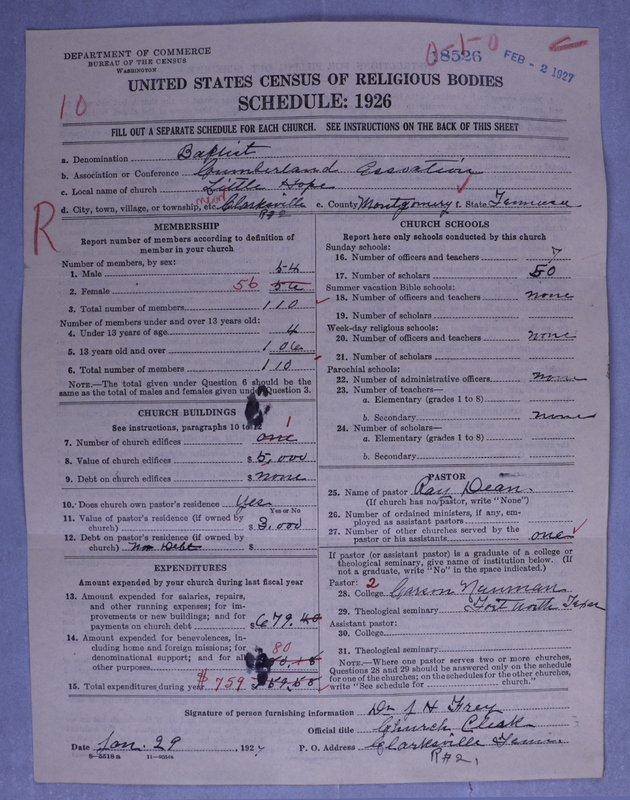 DEPARTMENT OF COMMERCE
BUREAU OF THE CENSUS
WASHINGTON
8526
FEB - 2 1927
10
UNITED STATES CENSUS OF RELIGIOUS BODIES
SCHEDULE: 1926
FILL OUT A SEPARATE SCHEDULE FOR EACH CHURCH. SEE INSTRUCTIONS ON THE BACK OF THIS SHEET
a. Denomination Baptist
b. Association or Conference Cumberland Assation
c. Local name of church Little Hope
d. City, town, village, or township, etc. near Clarksville R#2 e. County Montgomery f. State Tennessee
R
MEMBERSHIP
Report number of members according to definition of
member in your church
Number of members, by sex:
1. Male 54
2. Female 56 56
3. Total number of members 110
Number of members under and over 13 years old:
4. Under 13 years of age 4
5. 13 years old and over 106
6. Total number of members 110
NOTE.—The total given under Question 6 should be the
same as the total of males and females given under Question 3.
CHURCH BUILDINGS
See instructions, paragraphs 10 to 12
7. Number of church edifices one 1
8. Value of church edifices $ 5,000
9. Debt on church edifices $ none
10. Does church own pastor's residence Yes
Yes or No
11. Value of pastor's residence (if owned by
church) $ 3,000
12. Debt on pastor's residence (if owned by
church) Non Debt $
EXPENDITURES
Amount expended by your church during last fiscal year
13. Amount expended for salaries, repairs,
and other running expenses; for im-
provements or new buildings; and for
payments on church debt $ 679.40
14. Amount expended for benevolences, in-
cluding home and foreign missions; for
denominational support; and for all
other purposes 80
15. Total expenditures during year $ 759
CHURCH SCHOOLS
Report here only schools conducted by this church
Sunday schools:
16. Number of officers and teachers 7
17. Number of scholars 50
Summer vacation Bible schools:
18. Number of officers and teachers none
19. Number of scholars
Week-day religious schools:
20. Number of officers and teachers none
21. Number of scholars
Parochial schools:
22. Number of administrative officers none
23. Number of teachers—
a. Elementary (grades 1 to 8)
b. Secondary none
24. Number of scholars—
a. Elementary (grades 1 to 8)
b. Secondary
PASTOR
25. Name of pastor Ray Dean
(If church has no pastor, write "None")
26. Number of ordained ministers, if any, em-
ployed as assistant pastors
27. Number of other churches served by the
pastor or his assistants one
If pastor (or assistant pastor) is a graduate of a college or
theological seminary, give name of institution below. (If
not a graduate, write "No" in the space indicated.)
Pastor: 2
28. College Carson Newman
29. Theological seminary Fort Worth Texas
Assistant pastor:
30. College
31. Theological seminary
NOTE.—Where one pastor serves two or more churches,
Questions 28 and 29 should be answered only on the schedule
for one of the churches; on the schedules for the other churches,
write "See schedule for church."
Signature of person furnishing information Dr J H Frey
Official title Church Clerk
Date Jan. 29, 1927 P. O. Address Clarksville Tenn
R#2,
8-5518a 11-9054a